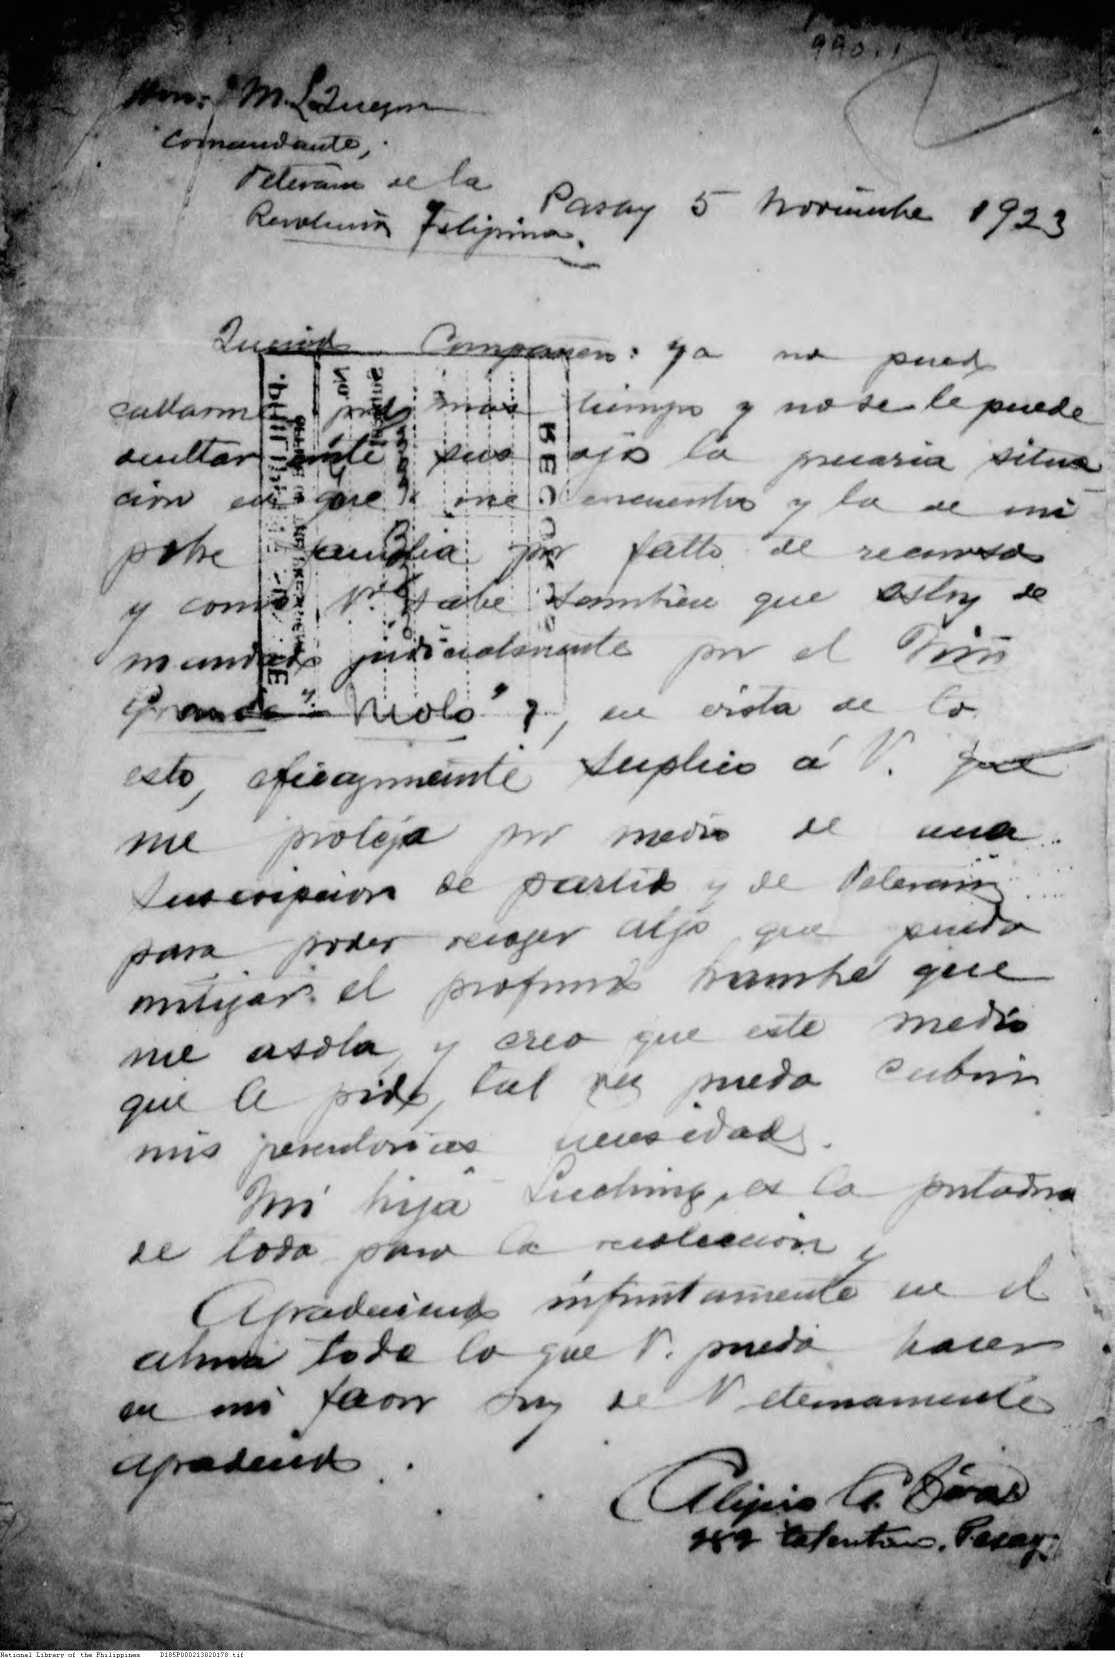 990.1
Hon: M. L. Quezon
Comandante,
Veterano de la
Revolución Filipina.
Pasay 5 Noviembre 1923
Querido Compañero: ya no puedo
callarme por mas tiempo y no se le puede
ocultar ante sus ojos la precaria situa
ción en que me encuentro y la de mi
pobre familia por falta de recursos
y como V. sabe tambien que estoy de
mandado judicialmente por el
Grande Molo" y, en vista de lo
esto, eficazmente suplico á V. que
me proteja por medio de una
suscripcion de partido y de Veteranos
para poder recoger algo que pueda
mitigar el profundo hambre que
me asola, y creo que este medio
que le pido, tal vez pueda cubrir
mis perentorias necesidades.
Mi hija Luching, es la portadora
de toda para la recoleccion y
Agradeciendo infinitamente en el
alma todo lo que V. pueda hacer
en mi favor soy de V eternamente
agradecido.
Alipio
Pasay.
RECORDS
National Library of the Philippines D185P000213820178.tif